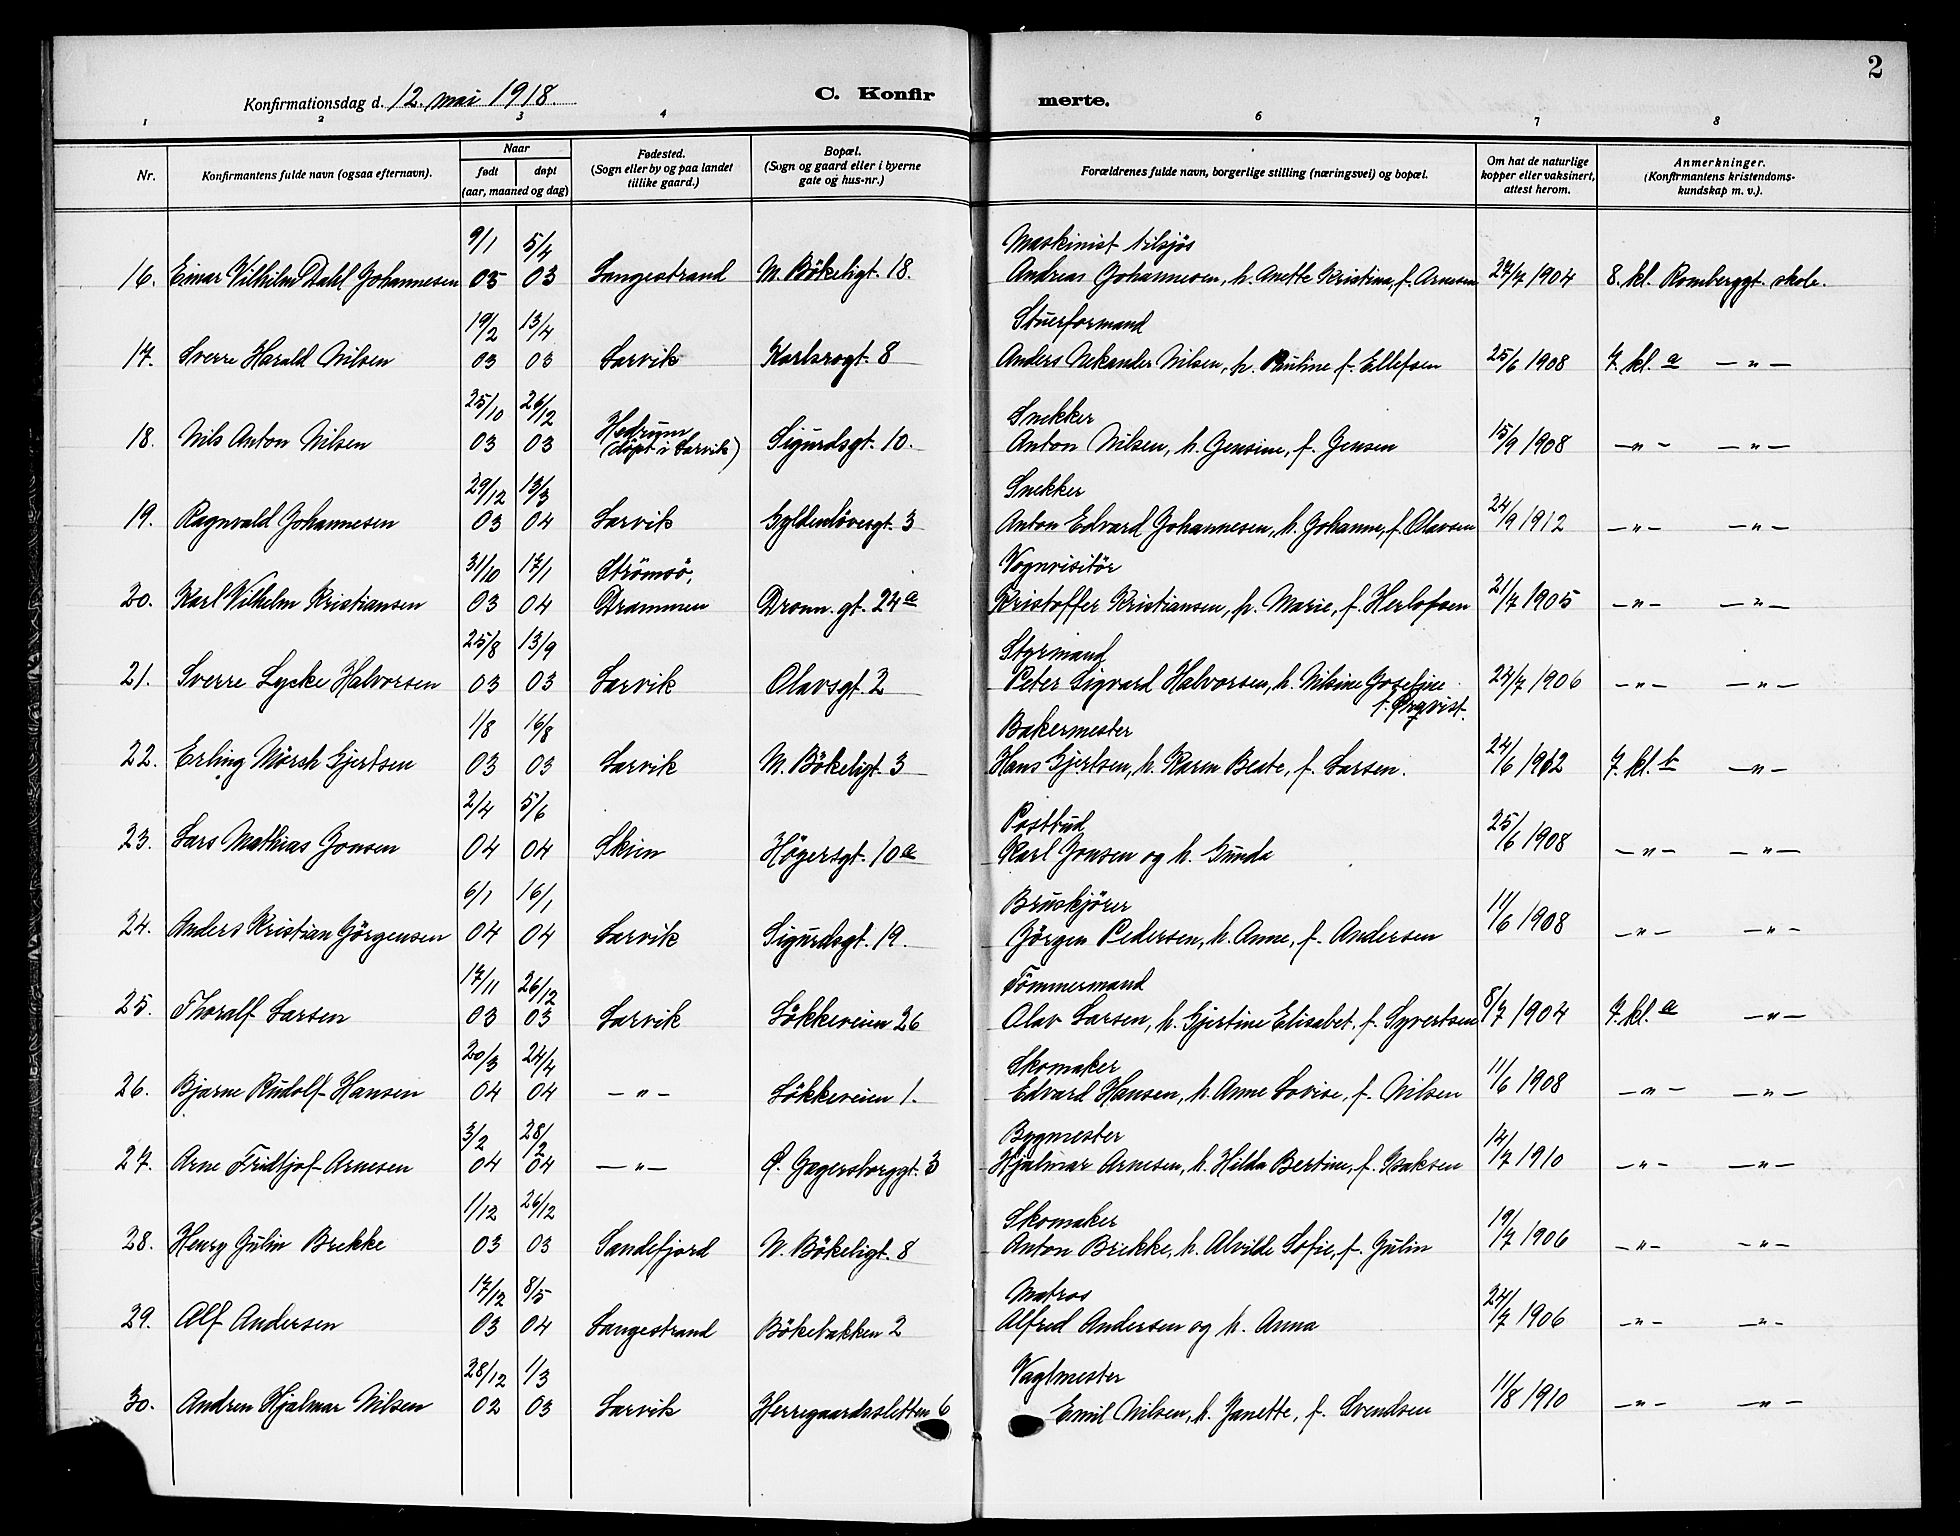 2
Konfirmationsdag d. 12. mai 1918.
C. Konfirmerte.
1 2 3 4 5 6 7 8
Nr.
Konfirmantens fulde navn (ogsaa efternavn).
Naar
født døpt
(aar, maaned og dag)
Fødested.
(Sogn eller by og paa landet
tillike gaard.)
Bopæl.
(Sogn og gaard eller i byerne
gate og hus-nr.)
Forældrenes fulde navn, borgerlige stilling (næringsvei) og bopæl.
Om hat de naturlige
kopper eller vaksinert,
attest herom.
Anmerkninger.
(Konfirmantens kristendoms-
kundskap m. v.).
9/1 5/4 Maskinist tilsjøs
16. Einar Vilhelm Dahl Johannesen 03 03 Langestrand N. Bökeligt. 18. Andreas Johannesen, h. Anette Kristina, f. Arnesen 27/7 1904 8. kl. Romberggt. skole.
19/2 13/4 Stuerformand
17. Sverre Harald Nilsen 03 03 Larvik Karlsrogt. 8 Anders Nekander Nilsen, h. Pauline f. Ellefsen 25/6 1908 7. kl. a -"-
25/10 26/12 Snekker
18. Nils Anton Nilsen 03 03 Hedrum (døpt i Larvik) Sigurdsgt. 10. Anton Nilsen, h. Jensine, f. Jensen 15/9 1908 -"- -"-
29/12 13/3 Snekker
19. Ragnvald Johannesen 03 04 Larvik Gyldenlövesgt. 3 Anton Edvard Johannesen, h. Johanne, f. Olavsen 24/9 1912 -"- -"-
31/10 17/1 Strömsö, Vognvisitör
20. Karl Vilhelm Kristiansen 03 04 Drammen Dronn. gt. 24a Kristoffer Kristiansen, h. Marie, f. Herlofsen 21/7 1905 -"- -"-
25/8 13/9 Styrmand
21. Sverre Lycke Halvorsen 03 03 Larvik Olavsgt. 2 Peter Sigvard Halvorsen, h. Nilsine Josefine 24/7 1906 -"- -"-
1/8 16/8 Bakermester
22. Erling Mörch Gjertsen 03 03 Larvik N. Bökeligt. 3 Hans Gjertsen, h. Karen Beate, f. Larsen. 24/6 1912 7. kl. b -"-
2/4 5/6 Postbud
23. Lars Mathias Jonsen 04 04 Skien Högersgt. 10a Karl Jonsen og h. Gunda 25/6 1908 -"- -"-
6/1 16/1 Bruskjörer
24. Anders Kristian Jörgensen 04 04 Larvik Sigurdsgt. 19. Jörgen Pedersen, h. Anne, f. Andersen 11/6 1908 -"- -"-
17/11 26/12 Tömmermand
25. Thoralf Larsen 03 03 Larvik Lökkeveien 26 Olav Larsen, h. Gjertine Elisabet, f. Syvertsen 8/7 1904 7. kl. a -"-
20/3 24/4 Skomaker
26. Bjarne Rudolf Hansen 04 04 -"- Lökkeveien 1. Edvard Hansen, h. Anne Lovise, f. Nilsen 11/6 1908 -"- -"-
3/2 28/12 Bygmester
27. Arne Fridtjof Arnesen 04 04 -"- Ø. Jegersborggt. 3 Hjalmar Arnesen, h. Hilda Bertine, f. Isaksen 14/7 1910 -"- -"-
1/12 26/12 Skomaker
28. Henry Julin Brekke 03 03 Sandefjord N. Bökeligt. 8 Anton Brekke, h. Alvilde Sofie, f. Julin 19/7 1906 -"- -"-
17/12 8/5 Matros
29. Alf Andersen 03 04 Langestrand Bökebakken 2 Alfred Andersen og h. Anna 24/7 1906 -"- -"-
28/12 1/3 Vagtmester
30. Andren Hjalmar Nilsen 02 03 Larvik Herregaardssletten 6 Emil Nilsen, h. Janette, f. Svendsen 11/8 1910 -"- -"-